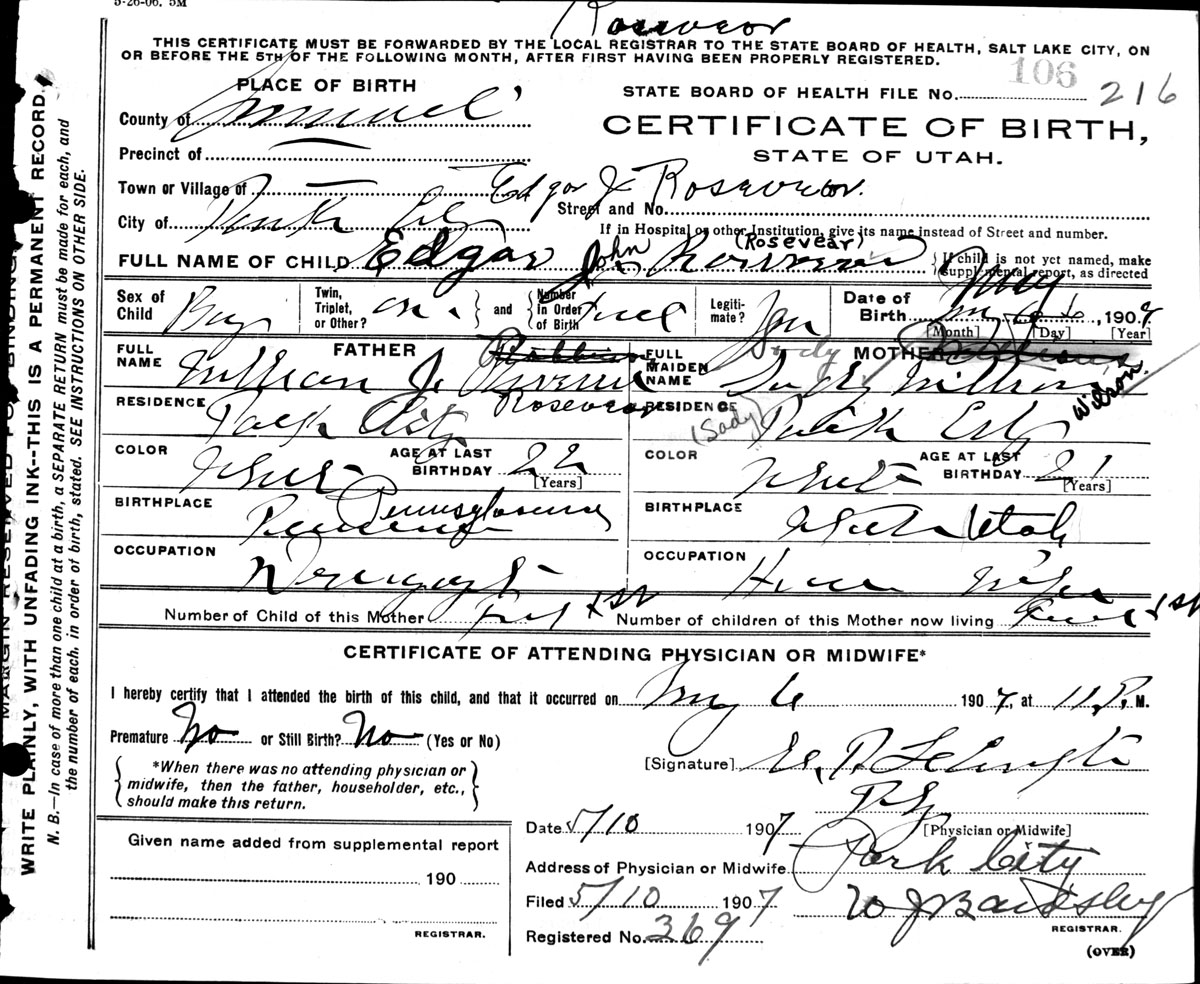 5-26-06. 5M
Rosevear
THIS CERTIFICATE MUST BE FORWARDED BY THE LOCAL REGISTRAR TO THE STATE BOARD OF HEALTH, SALT LAKE CITY, ON
OR BEFORE THE 5TH OF THE FOLLOWING MONTH, AFTER FIRST HAVING BEEN PROPERLY REGISTERED.
106
PLACE OF BIRTH
STATE BOARD OF HEALTH FILE No. 216
County of Summit
CERTIFICATE OF BIRTH,
Precinct of
STATE OF UTAH.
Town or Village of —
Edgar J. Rosevear.
Street and No.
City of Park City
If in Hospital or other Institution, give its name instead of Street and number.
FULL NAME OF CHILD Edgar John Rosevear (Rosevear)
If child is not yet named, make supplemental report, as directed
Sex of Child Boy
Twin, Triplet, or Other? one and Number in Order of Birth
Legiti-mate?
Date of Birth May 6, 1907
[Month] [Day] [Year]
FATHER
FULL NAME William J. Rosevear
MOTHER
FULL MAIDEN NAME Sady Wilson
RESIDENCE Park City
RESIDENCE (Sady) Park City
COLOR White AGE AT LAST BIRTHDAY 22 [Years]
COLOR White AGE AT LAST BIRTHDAY 21 [Years]
BIRTHPLACE Pennsylvania
BIRTHPLACE Utah
OCCUPATION
OCCUPATION House Wife
Number of Child of this Mother First 1st
Number of children of this Mother now living 1st
CERTIFICATE OF ATTENDING PHYSICIAN OR MIDWIFE*
I hereby certify that I attended the birth of this child, and that it occurred on May 6 1907, at 11 P. M.
Premature No or Still Birth? No (Yes or No)
*When there was no attending physician or midwife, then the father, householder, etc., should make this return.
[Signature]
[Physician or Midwife]
Date 5/10 1907
Given name added from supplemental report
190
REGISTRAR.
Address of Physician or Midwife Park City
Filed 5/10 1907 W J Bardsley
REGISTRAR.
Registered No. 369
(OVER)
MARGIN RESERVED FOR BINDING.
WRITE PLAINLY, WITH UNFADING INK--THIS IS A PERMANENT RECORD.
N. B.—In case of more than one child at a birth, a SEPARATE RETURN must be made for each, and
the number of each. in order of birth, stated. SEE INSTRUCTIONS ON OTHER SIDE.